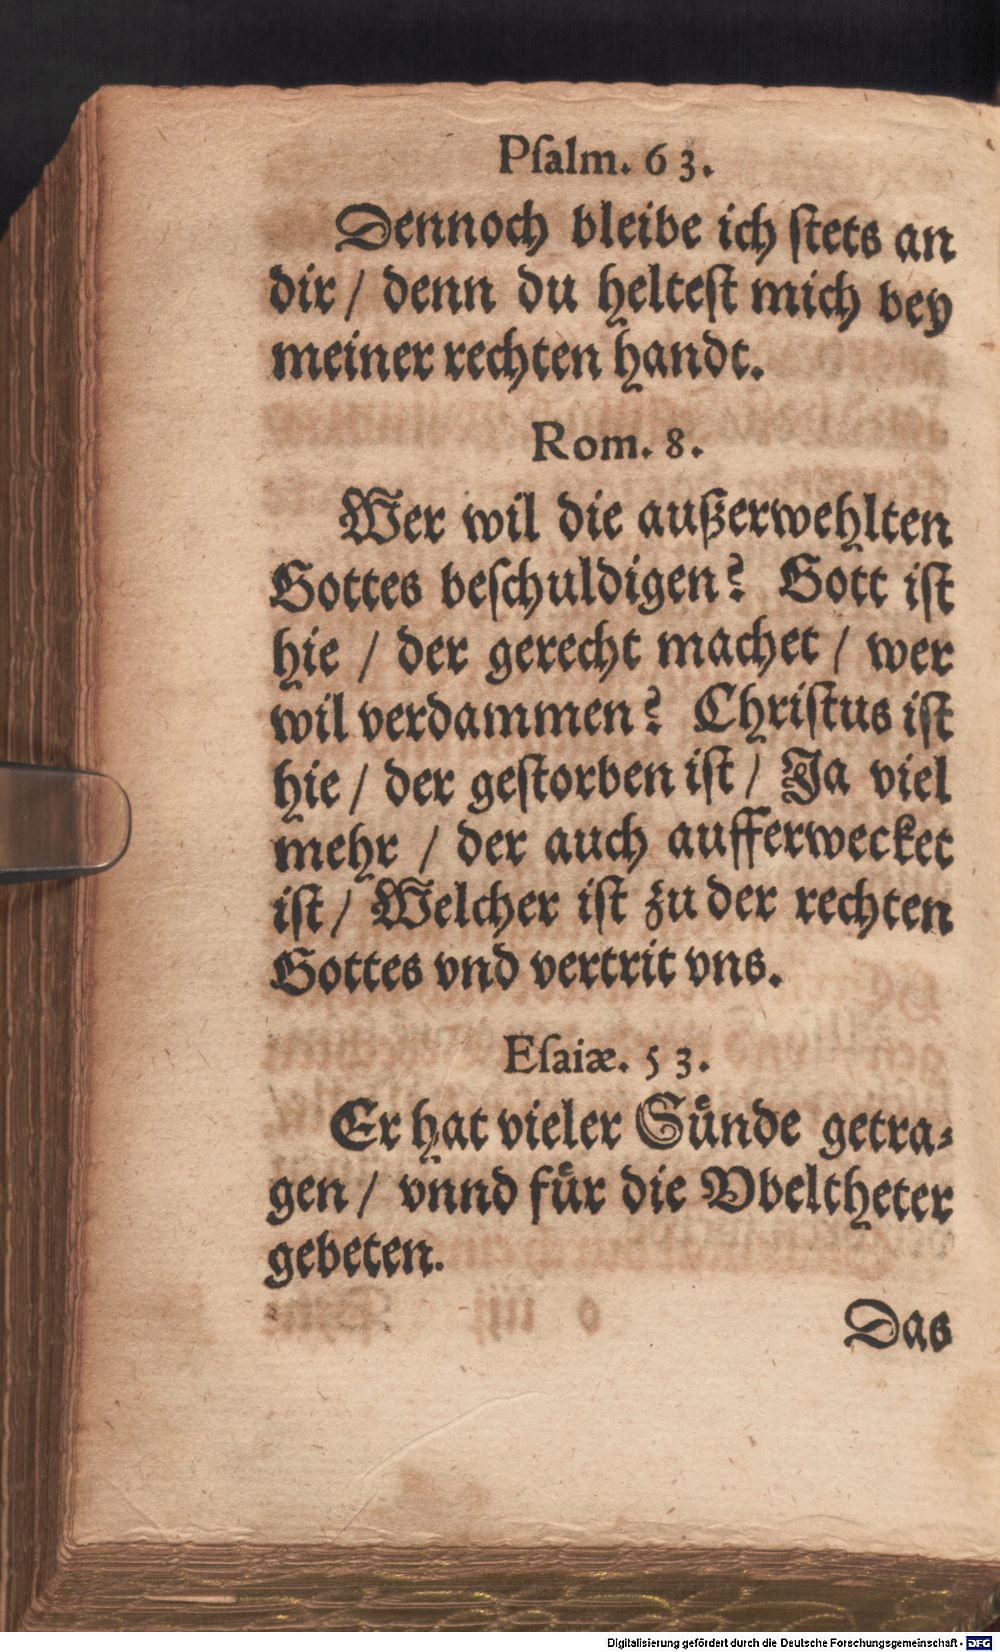 Pſalm. 63.
Dennoch bleibe ich ſtets an
dir / denn du helteſt mich bey
meiner rechten handt.
Rom. 8.
Wer wil die außerwehlten
Gottes beſchuldigen? Gott iſt
hie / der gerecht machet / wer
wil verdammen? Chriſtus iſt
hie / der geſtorben iſt / Ja viel
mehr / der auch aufferwecket
iſt / Welcher iſt zu der rechten
Gottes vnd vertrit vns.
Eſaiæ. 53.
Er hat vieler Sünde getra⸗
gen / vnnd für die Vbeltheter
gebeten.
Das
Digitalisierung gefördert durch die Deutsche Forschungsgemeinschaft - DFG